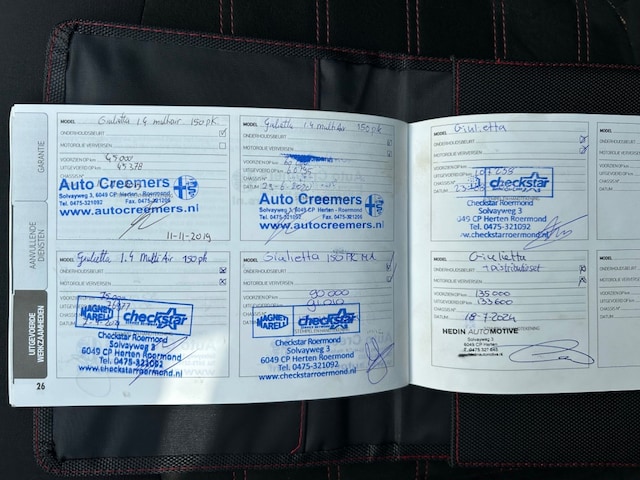 GARANTIE
AANVULLENDE
DIENSTEN
UITGEVOERDE
WERKZAAMHEDEN
26
MODEL Giulietta 1.4 multiair 150 pk
ONDERHOUDSBEURT
MOTOROLIE VERVERSEN
VOORZIEN OP km 45.000
UITGEVOERD OP km 45.378
CHASSIS N°
Auto Creemers
Solvayweg 3, 6049 CP Herten - Roermond
Tel. 0475-321092 Fax. 0475-321205
www.autocreemers.nl
11-11-2019
MODEL Giulietta 1.4 MultiAir 150 pk
ONDERHOUDSBEURT
MOTOROLIE VERVERSEN
VOORZIEN OP km
UITGEVOERD OP km 60.195
CHASSIS N°
DATUM 23-6-2020
Auto Creemers
Solvayweg 3, 6049 CP Herten - Roermond
Tel. 0475-321092 Fax. 0475-321205
www.autocreemers.nl
MODEL Giulietta 1.4 Multi Air 150 pk
ONDERHOUDSBEURT
MOTOROLIE VERVERSEN
VOORZIEN OP km
UITGEVOERD OP km
CHASSIS N°
MAGNETI MARELLI
checkstar
Checkstar Roermond
Solvayweg 3
6049 CP Herten Roermond
Tel. 0475-321092
www.checkstarroermond.nl
MODEL Giulietta 150 PK MA
ONDERHOUDSBEURT
MOTOROLIE VERVERSEN
VOORZIEN OP km 90 000
UITGEVOERD OP km
CHASSIS N°
DATUM
MAGNETI MARELLI
checkstar
Checkstar Roermond
Solvayweg 3
6049 CP Herten Roermond
Tel. 0475-321092
www.checkstarroermond.nl
MODEL Giulietta
ONDERHOUDSBEURT
MOTOROLIE VERVERSEN
VOORZIEN OP km
UITGEVOERD OP km
CHASSIS N°
DATUM
checkstar
Checkstar Roermond
Solvayweg 3
6049 CP Herten Roermond
Tel. 0475-321092
www.checkstarroermond.nl
MODEL Giulietta
ONDERHOUDSBEURT + distributieset
MOTOROLIE VERVERSEN
VOORZIEN OP km 135000
UITGEVOERD OP km 133600
CHASSIS N°
DATUM 18-7-2024
HEDIN AUTOMOTIVE
Solvayweg 3
6049 CP Herten
MODEL
ONDERHOUDSBEURT
MOTOROLIE VERVERSEN
VOORZIEN OP km
UITGEVOERD OP km
CHASSIS N°
DATUM
MODEL
ONDERHOUDSBEURT
MOTOROLIE VERVERSEN
VOORZIEN OP km
UITGEVOERD OP km
CHASSIS N°
DATUM